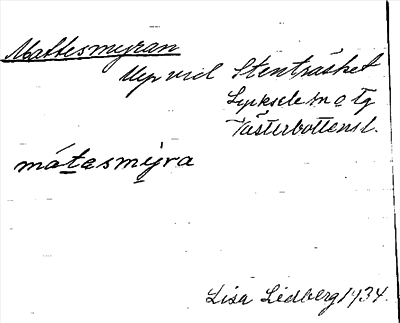 Mattesmyran
Myr vid Stenträsket
Lycksele sn o tg
Västerbottens l.
mátesmýra
Lisa Lidberg 1934.